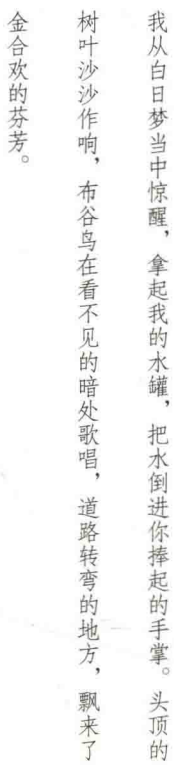 我从白日梦当中惊醒，拿起我的水罐，把水倒进你捧起的手掌。头顶的
树叶沙沙作响，布谷鸟在看不见的暗处歌唱，道路转弯的地方，飘来了
金合欢的芬芳。